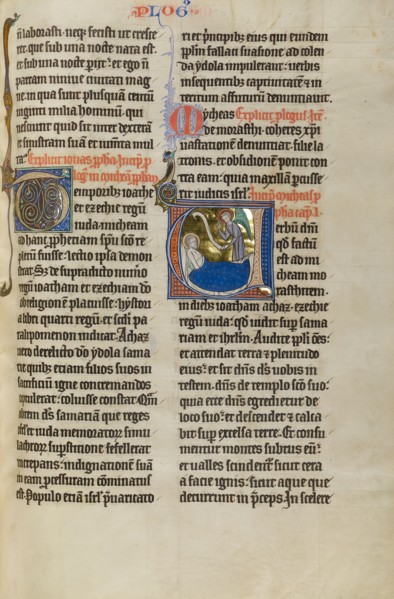 PLOG
n laborasti neqȝ fecisti ut cresce
ret. que sub una nocte nata est.
et sub una nocte perit et ego n
parcam ninive civitati mag
ne in qua sunt plusquam centum
viginti milia hominum qui
nesciunt quid sit inter dexterā
et sinistram suā et iumēta mul
ta. Explicit ionas ppha. Incip p
logꝰ in micheam ppham
Temporibꝫ ioathe
et ezechie regū
iuda micheam
ad hanc ppheciam spū sc̄o re
pletū fuisse lectio ipsa demon
strat. Sȝ de supradicto numo
regū ioatham et ezechiam do
religionem placuisse hystori
a libri quarti regū et scdi pa
ralipomenon indicat. Achaz
vero derelicto do ydola sama
rie quibꝫ etiam filios suos in
sacrificiū igne concremandos
coluisse constat. Om
dn̄s samariam que reges
iuda memoratos simu
lachrorū supstitione fefellerat
increpans indignationē suā
in eam pcessuram cominatus
est. Populo etiā isrl puaricato
ri et pncipibꝫ eius qui eundem
pplm fallaci suasione ad colen
da ydola impulerāt verbis
insequentibꝫ captivitatē et in
teritum affuturū denunciavit.
Mycheas Explicit plogus. Itē
de morasthi coheres xpi
vastationē denunciat filie la
tronis et obsidionē ponit con
tra eam quia maxillā pcusse
rit iudicis isrl. Incip micheas p
pha cap. I.
Verbū dn̄i
qd factū
est ad mi
cheam mo
rasthitem
in diebꝫ ioatham achaz ezechie
regū iuda qd vidit sup sama
riam et ihrlm. Audite ppli oēs
et attendat terra et plenitudo
eius et sit dn̄s dꝰs vobis in
testem dn̄s de templo sc̄o suo
quia ecce dn̄s egredietur de
loco suo et descendet et calca
bit sup excelsa terre. Et consu
mentur montes subtus eū
et valles scindent̄ sicut cera
a facie ignis sicut aque que
decurrunt in pceps. In scelere